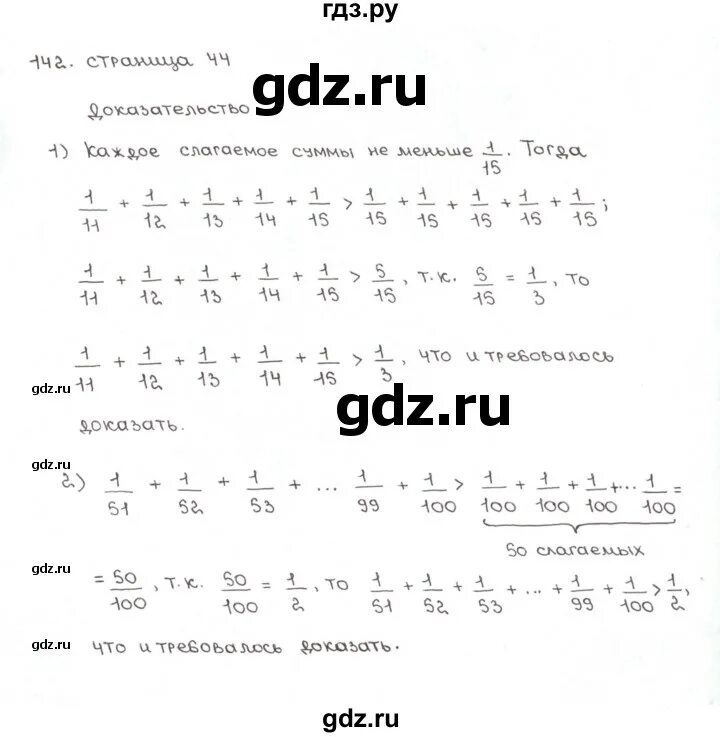 гдз.ру
142. страница 44
gdz.ru
Доказательство
1) Каждое слагаемое суммы не меньше 1/15. Тогда
1/11 + 1/12 + 1/13 + 1/14 + 1/15 > 1/15 + 1/15 + 1/15 + 1/15 + 1/15;
1/11 + 1/12 + 1/13 + 1/14 + 1/15 > 5/15, т.к. 5/15 = 1/3, то
1/11 + 1/12 + 1/13 + 1/14 + 1/15 > 1/3, что и требовалось
gdz.ru
gdz.ru
доказать.
gdz.ru
2) 1/51 + 1/52 + 1/53 + ... 1/99 + 1/100 > 1/100 + 1/100 + 1/100 +... 1/100 =
50 слагаемых
gdz.ru
= 50/100, т.к. 50/100 = 1/2, то 1/51 + 1/52 + 1/53 + ... + 1/99 + 1/100 > 1/2,
gdz.ru
что и требовалось доказать.
gdz.ru